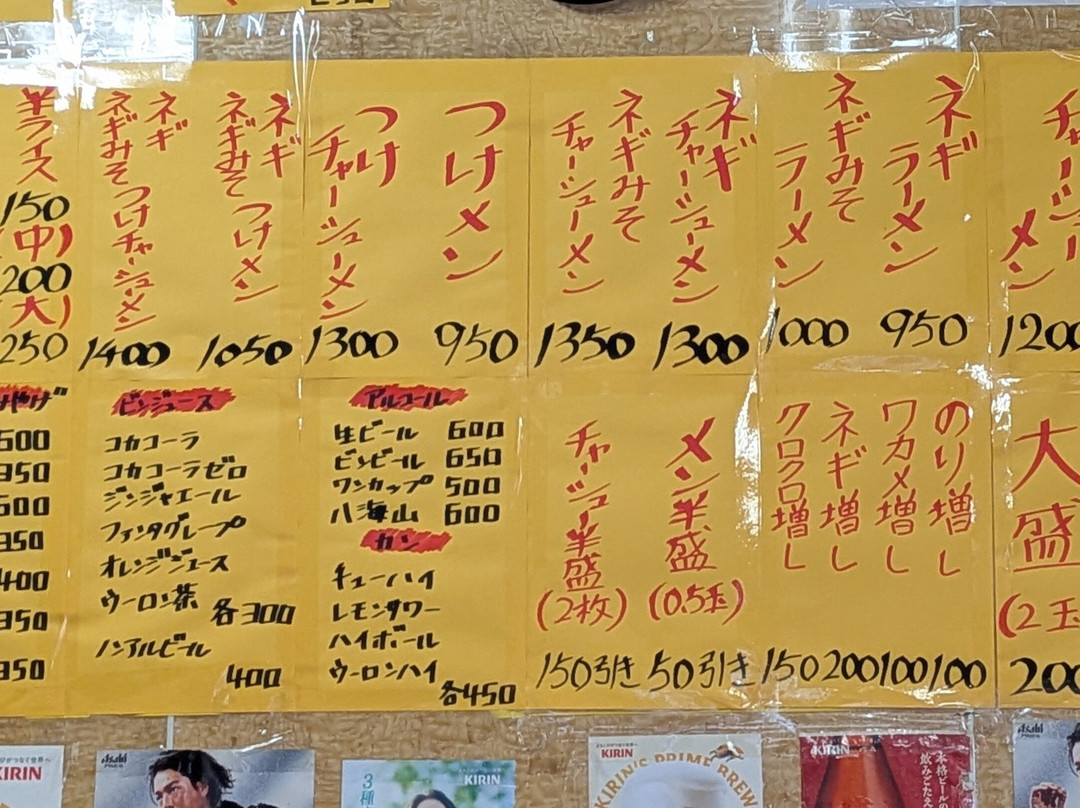 チャーシューメン
1200
ネギラーメン
950
ネギみそラーメン
1000
ネギチャーシューメン
1300
ネギみそチャーシューメン
1350
つけメン
950
つけチャーシューメン
1300
ネギ
ネギみそ
つけメン
1050
ネギ
ネギみそ
つけチャーシューメン
1400
半ライス
150
(中)
200
(大)
250
大盛
(2玉
200
のり増し
100
ワカメ増し
100
ネギ増し
200
クロクロ増し
150
メン半盛
(0.5玉)
50引き
チャーシュー半盛
(2枚)
150引き
アルコール
生ビール 600
ビンビール 650
ワンカップ 500
八海山 600
カン
チューハイ
レモンサワー
ハイボール
ウーロンハイ
各450
ビンジュース
コカコーラ
コカコーラゼロ
ジンジャエール
ファンタグレープ
オレンジジュース
ウーロン茶
各300
ノンアルビール
400
みやげ
600
350
400
350
350
KIRIN
Asahi
KIRIN
KIRIN
KIRIN'S PRIME BREW
KIRIN
本格ビールの
飲みごたえ
Asahi